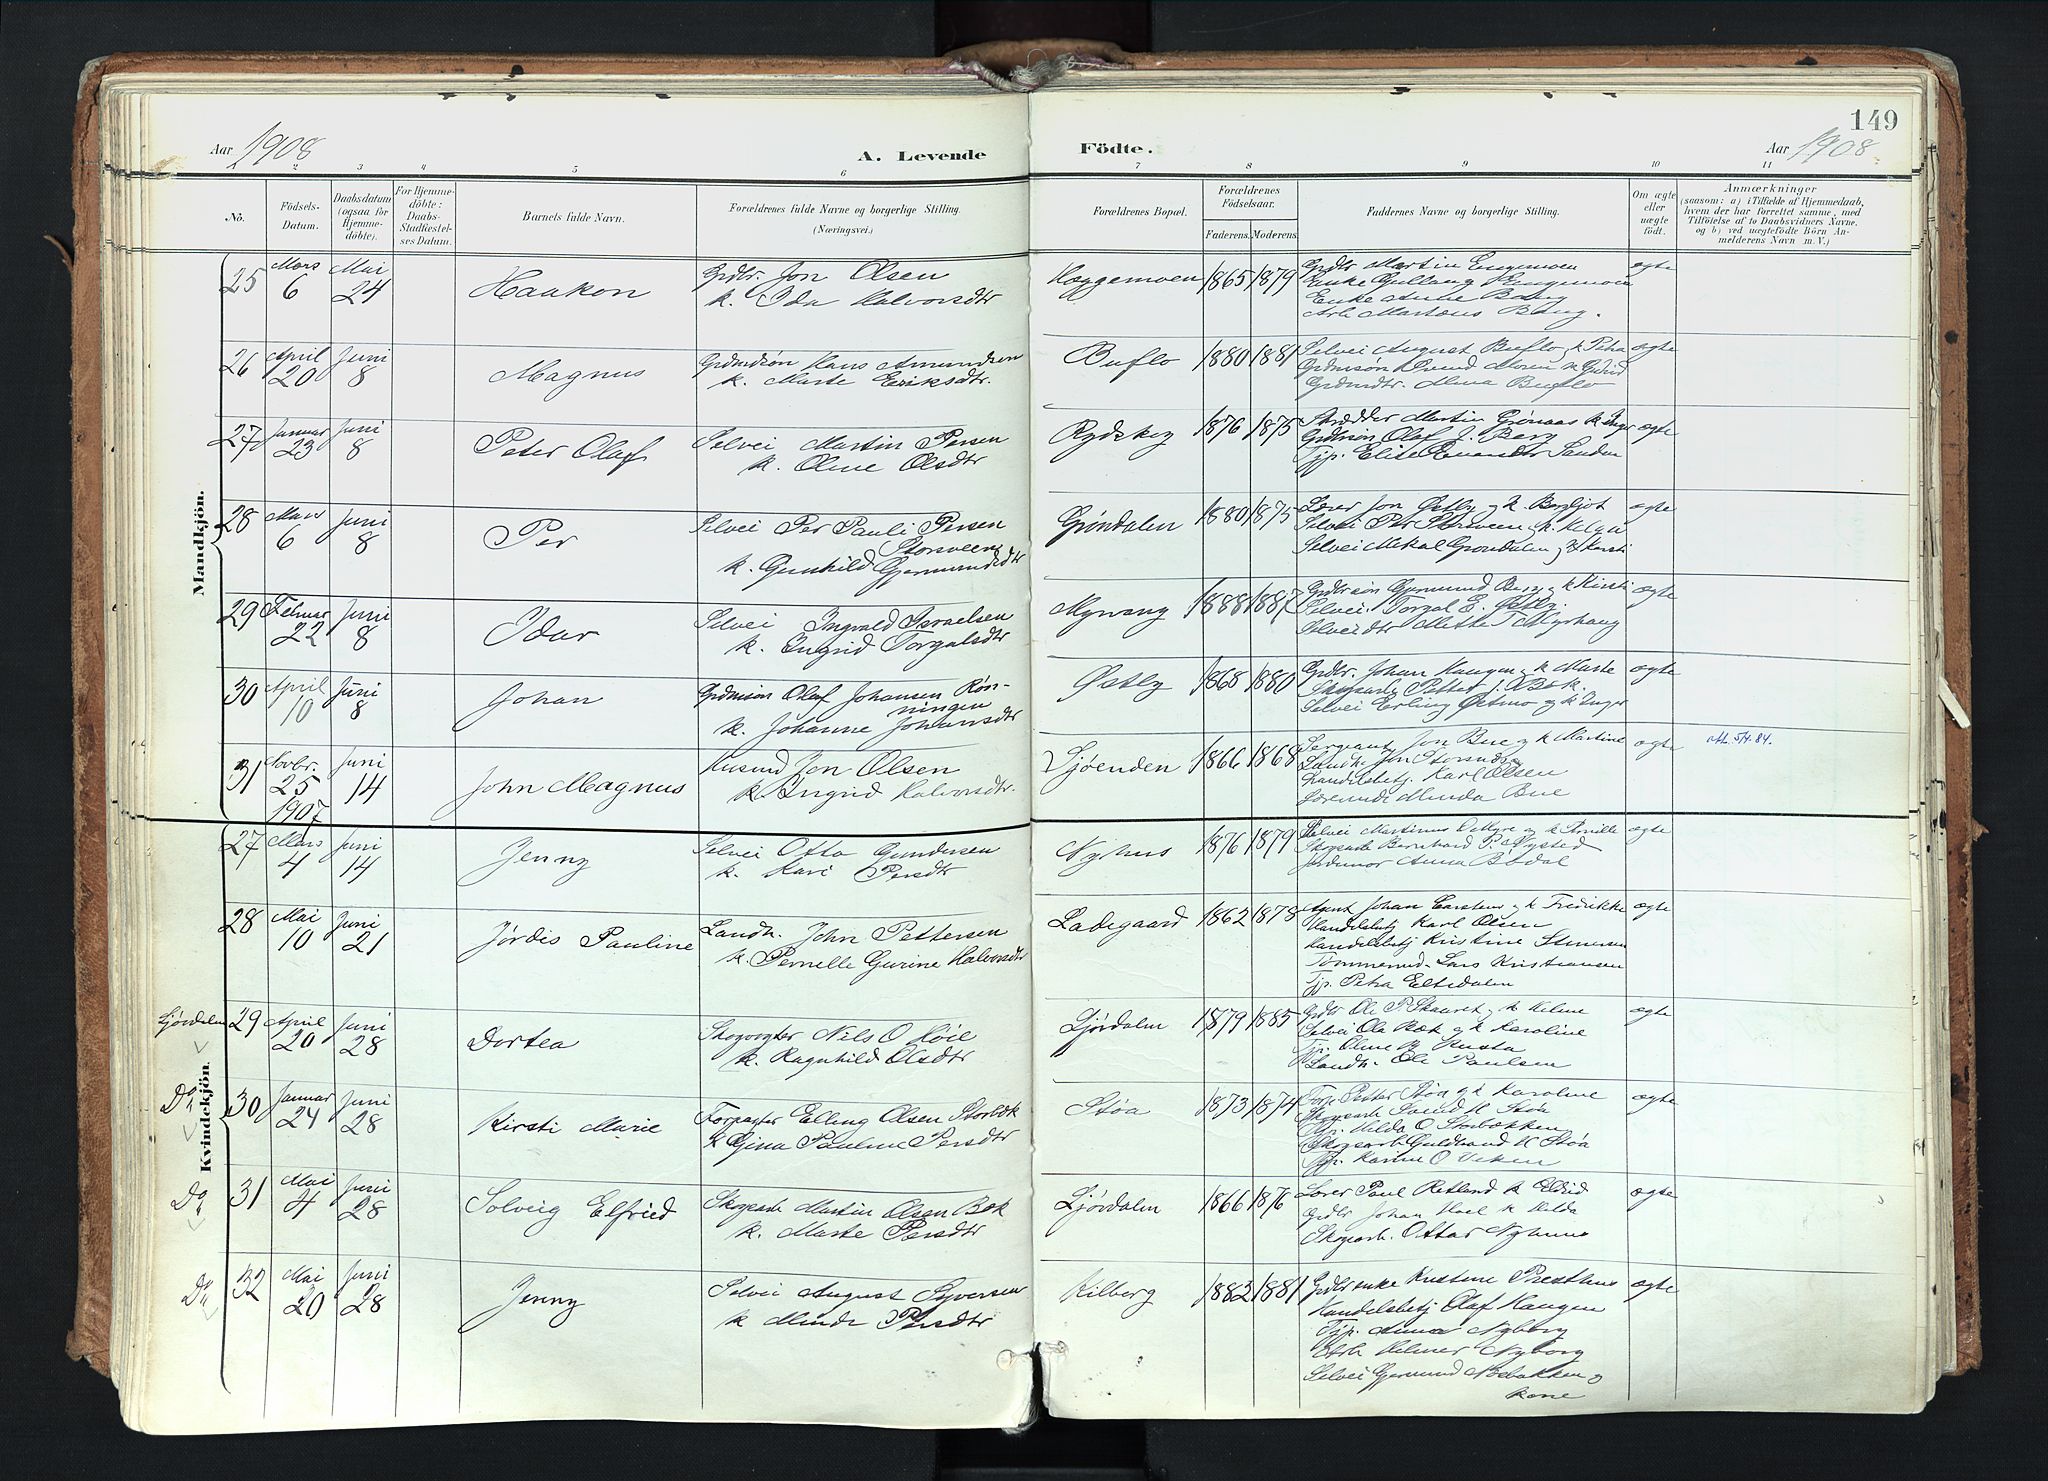 149
Aar 1908
A. Levende
Födte.
Aar 1908
2 3 4 5 6 7 8 9 10 11
No.
Födsels-Datum.
Daabsdatum (ogsaa for Hjemme-döbte).
For Hjemme-döbte: Daabs-Stadfæstel-ses Datum.
Barnets fulde Navn.
Forældrenes fulde Navne og borgerlige Stilling. (Næringsvei.)
Forældrenes Bopæl.
Forældrenes Födselsaar.
Faderens. Moderens.
Faddernes Navne og borgerlige Stilling.
Om ægte eller uægte födt.
Anmærkninger
(saasom: a) i Tilfælde af Hjemmedaab, hvem der har forrettet samme, med Tilföielse af to Daabsvidners Navne, og b) ved uægtefödte Börn An-melderens Navn m. V.)
Mandkjön.
25 Mars 6 Mai 24 Haakon
Grdbr. Jon Olsen
k. Ida Halvorsdtr
Hæggemoen 1865 1879
Grdbr Martin Engemoen
Enke Gullaug Engemoen
Enke Anne Bang
Arb Martinus Bang.
ægte
26 April 20 Juni 8 Magnus
Grdmdsön Hans Amundsen
k. Marte Eriksdtr.
Buflo 1880 1881
Selvei August Buflo og k Petra
Grdmdtr. Buflo
ægte
27 Januar 23 Juni 8 Peter Olaf
Selvei Martin Persen
k. Oline Olsdtr
1876 1875
Skrædder Martin Grønaas k Inger
Grdmsön Olaf J. Berg
Tjp. Elise Sanden
ægte
28 Mars 6 Juni 8 Per
Selvei Per Pauli Persen
Storsveen
k. Gunhild Gjermundsdtr
Grøndalen 1880 1875
Lærer Jon Østby og k Bergljot
Selvei Per k. Helga
Selvei Mikal Grøndalen og k Kersti
ægte
29 Februar 22 Juni 8 Idar
Selvei Ingvald Israelsen
k. Ingrid Torgalsdtr
Myrvang 1888 1887
Grdbrsön Gjermund Berg og k Kirsti
Selvei Torgal E. Østby.
Selveidtr Mathea T Myrhaug
ægte
30 April 10 Juni 8 Johan
Grdmsön Olaf Johansen Røn-
ningen
k. Johanne Johansdtr
Østby 1868 1880
Grdbr. Johan Haugen og k Marte
Skogsarb Petter J. Bæk.
Selvei Erling Østmo og k Inger
ægte
31 Novbr. 25 1907 Juni 14 John Magnus
Husmd Jon Olsen
k. Ingrid Halvorsdtr.
Sjøenden 1866 1868
Sergeant Jon Bue og k Martine
Landh. Jon
Handelsbetj. Karl Olsen
Minda Bue
ægte
att. 5/4. 84.
Kvindekjön.
27 Mars 4 Juni 14 Jenny
Selvei Otto Gundersen
k. Kari Persdtr
Nyhus 1876 1879
Selvei Martinus og k Pernille
Skogsarb Bernhard P. Nysted
Jordmor Anna
ægte
28 Mai 10 Juni 21 Jørdis Pauline
Landh. John Pettersen
k. Pernelle Gurine Halvorsdtr
Ladegaard 1862 1878
Agent Johan Carstens og k Fredrikke
Handelsbetj Karl Olsen
Handelsbetj Kristine Stenersen
Tømmermd. Lars Kristiansen
Tjp. Petra Eltsdalen
ægte
Ljørdalen 29 April 20 Juni 28 Dortea
Skogvogter Nils O Høie
k. Ragnhild Olsdtr
Ljørdalen 1879 1885
Grdbr Ole P. Skaaret og k Helene
Selvei Ola Bæk og k Karoline
Tjp. Oline
Landh. Ole Paulsen
ægte
Do 30 Januar 24 Juni 28 Kirsti Marie
Forpagter Elling Olsen Storbæk
k Gina Pauline Persdtr
Støa 1873 1874
Forp Petter Støa og k Karoline
Skogsarb H Støa
Tjp. Hilda O Storbækken
Skogsarb Guldbrand H Støa
Tjp. Karine O Viken
ægte
Do 31 Mai 4 Juni 28 Solveig Elfried
Skogsarb Martin Olsen Bæk
k. Marte Persdtr
Ljørdalen 1866 1876
Lærer Paul Retland k Eldrid
Grdbr Johan k Hilda
Skogsarb. Ottar Nyhuus
ægte
Do 32 Mai 20 Juni 28 Jenny
Selvei August Syversen
k Minda Persdtr
Kilberg 1882 1881
Grdbr enke Kristine Præsthus
Handelsbetj Olaf Haugen
Tjp. Anna Nyborg
Arb Helmer Nyborg
Selvei Gjermund Nesbakken og
kone
ægte